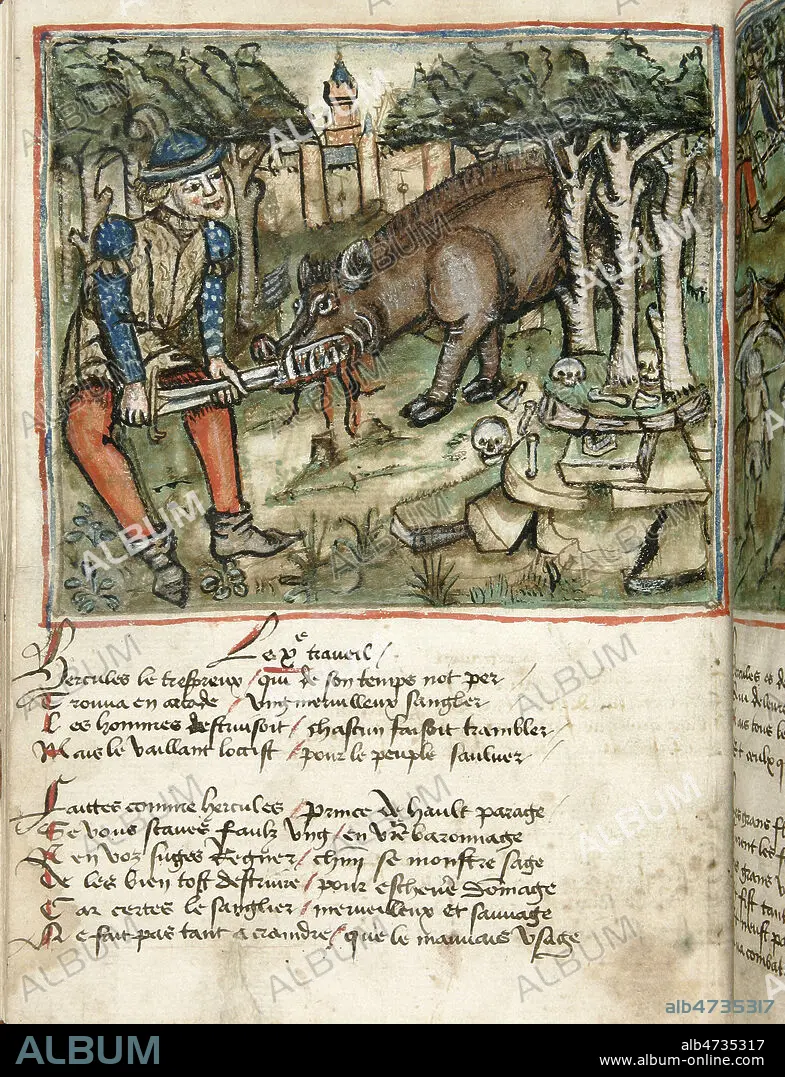 Le xe traveil
Hercules le trespreux / qui de son temps not per
Trouva en arcade / ung merveilleux sangler
Les hommes destruisoit / chascun faisoit trambler
Mais le vaillant loccist / pour le peuple saulver
Faittes comme hercules / prince de hault parage
Se vous scaves faulx ung / en vre baronnage
Ren voz suges Regner / chun se monstre sage
De les bien tost destruire / pour eschever domage
Car certes le sanglier / merveilleux et sauvage
Ne fait pas tant a craindre / que le mauvais usage
ALBUM
alb4735317
ALBUM
alb4735317
www.album-online.com